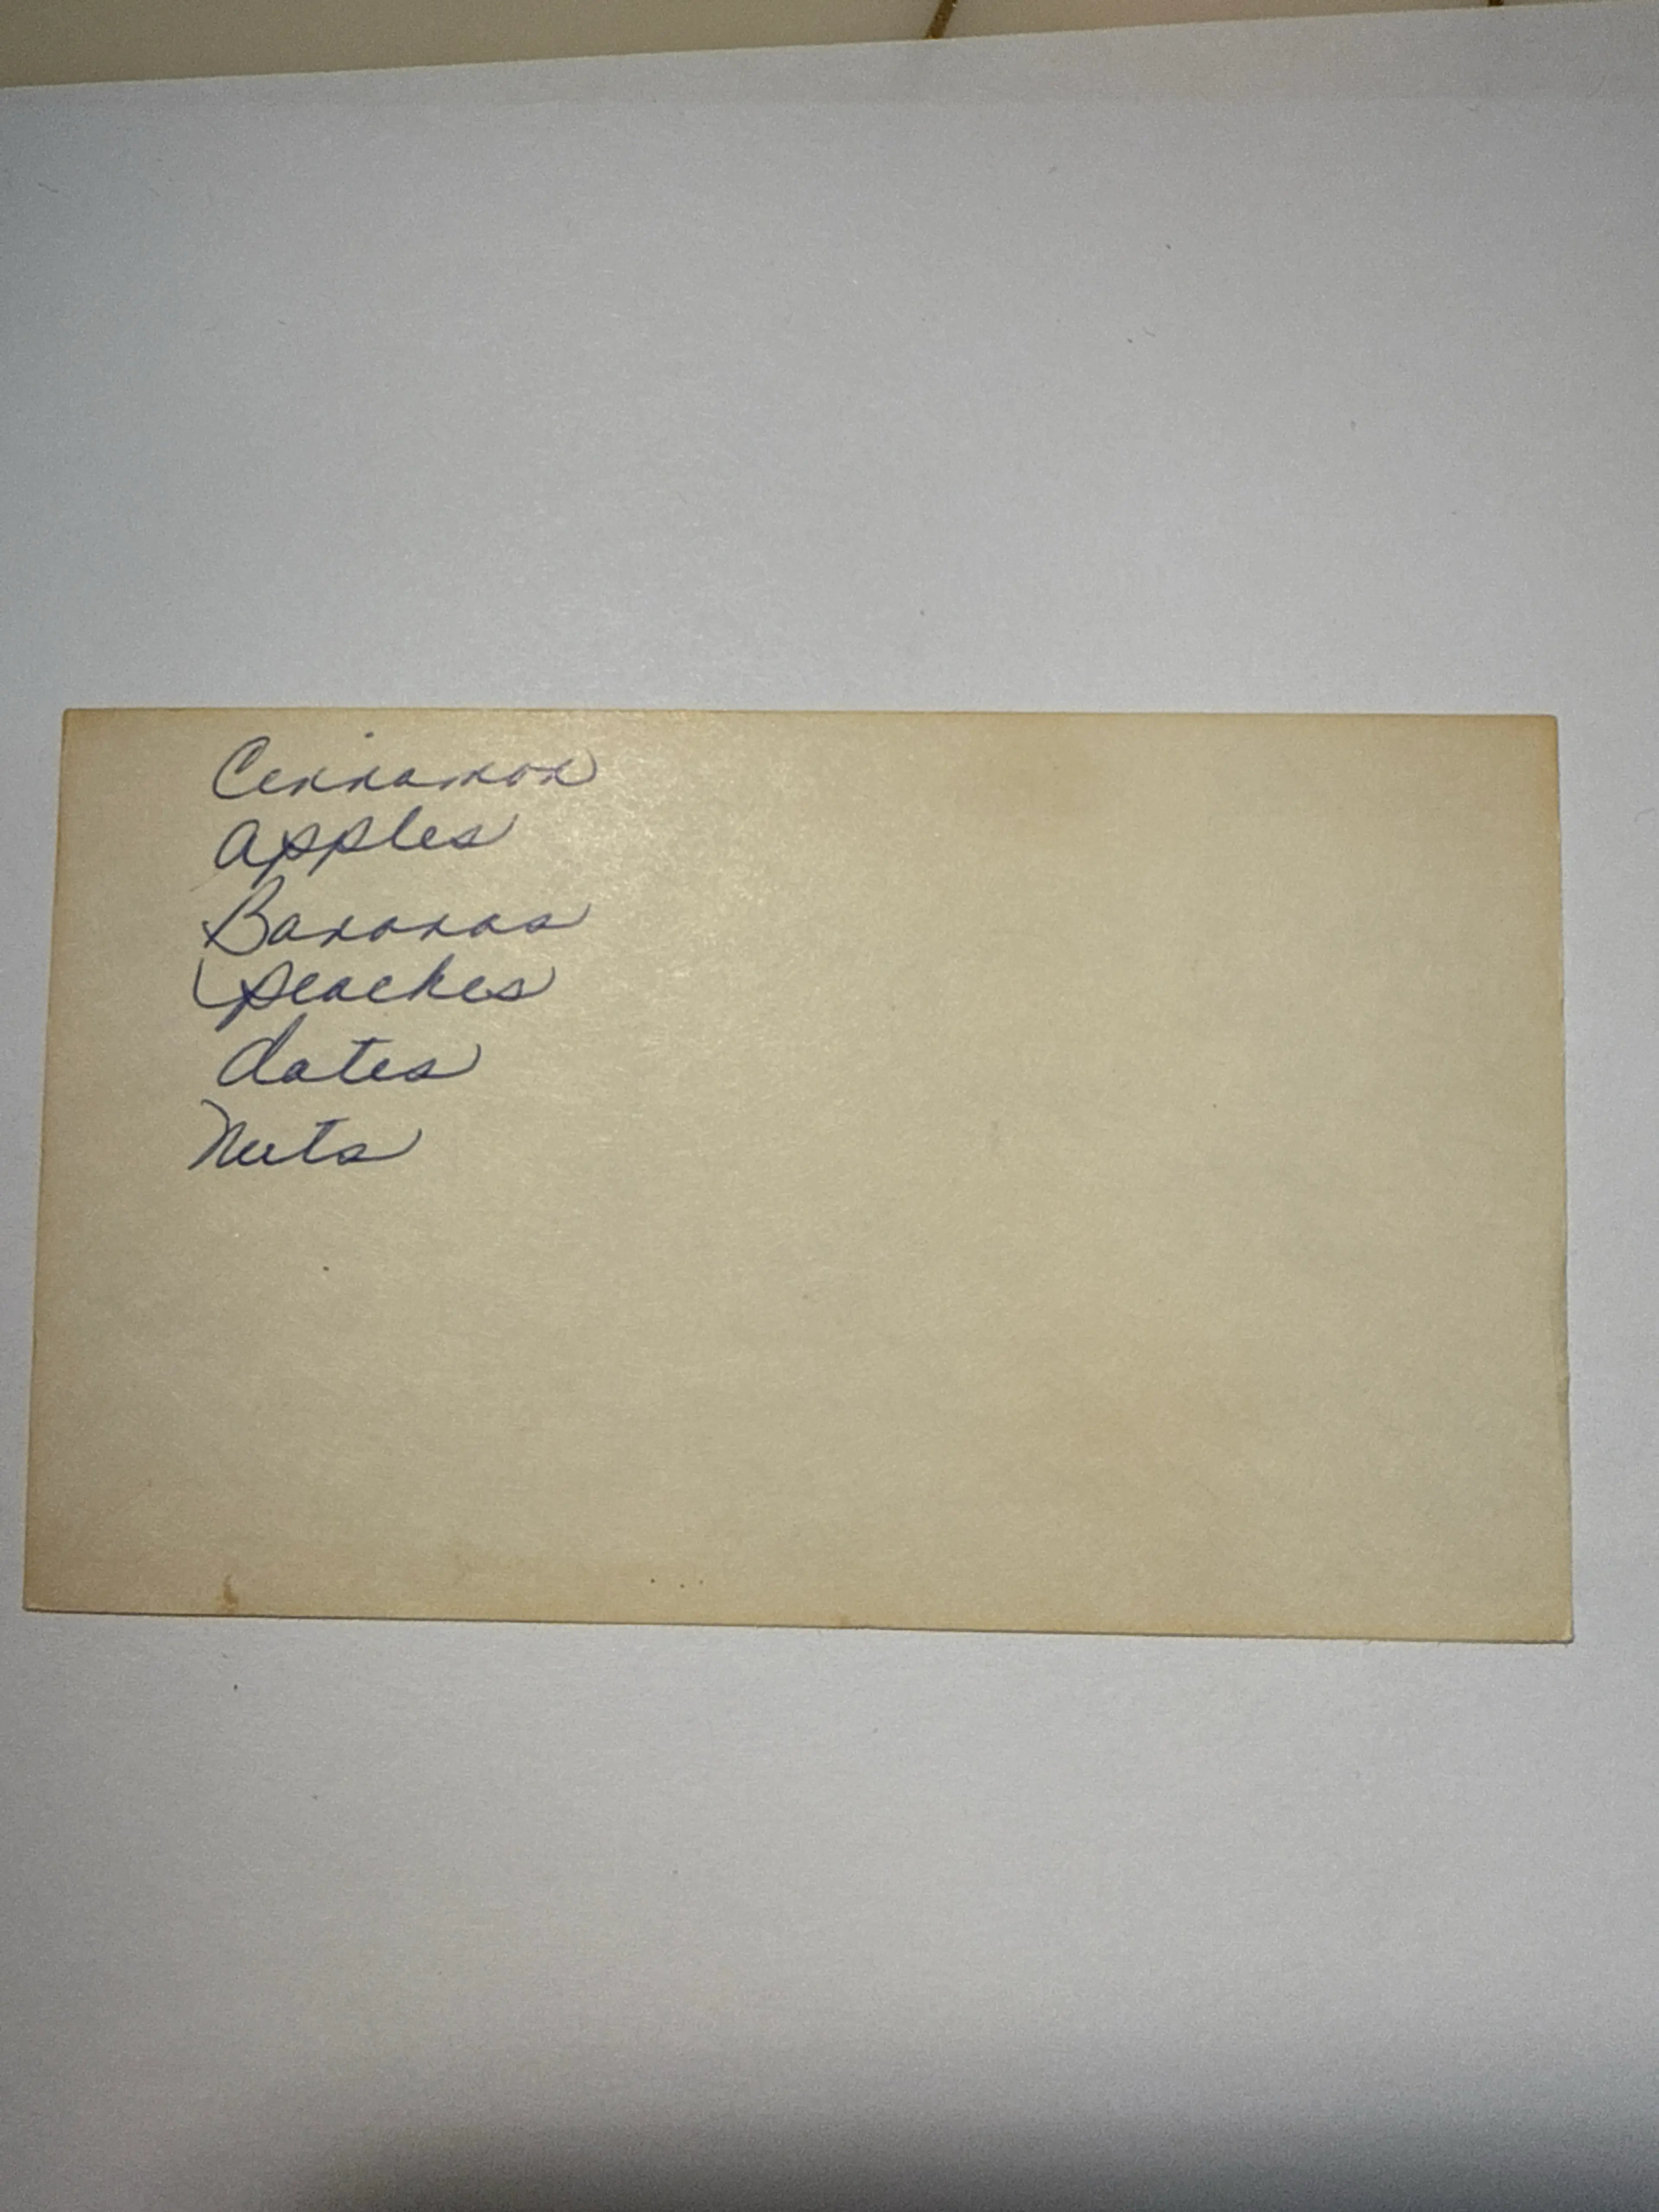 Cinnamon
apples
Bananas
peaches
dates
Nuts